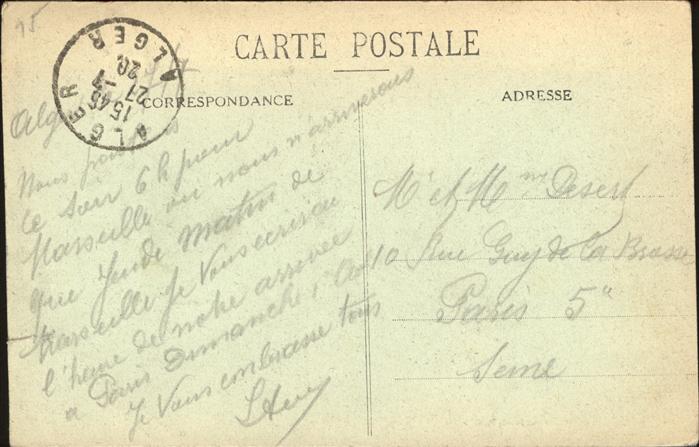 15
CARTE POSTALE
CORRESPONDANCE
ADRESSE
ALGER ALGER
15 45
27 -7
20
Alger 27/7
Nous partons
ce soir 6h pour
Marseille ou nous n'arriverons
que Jeudi matin de
Marseille Je Vous écrirai
l'heure de notre arrivée
a Paris Dimanche
Je Vous embrasse tous
Mr et Mme Desert
10 Rue Guy de la Brosse
Paris 5e
Seine